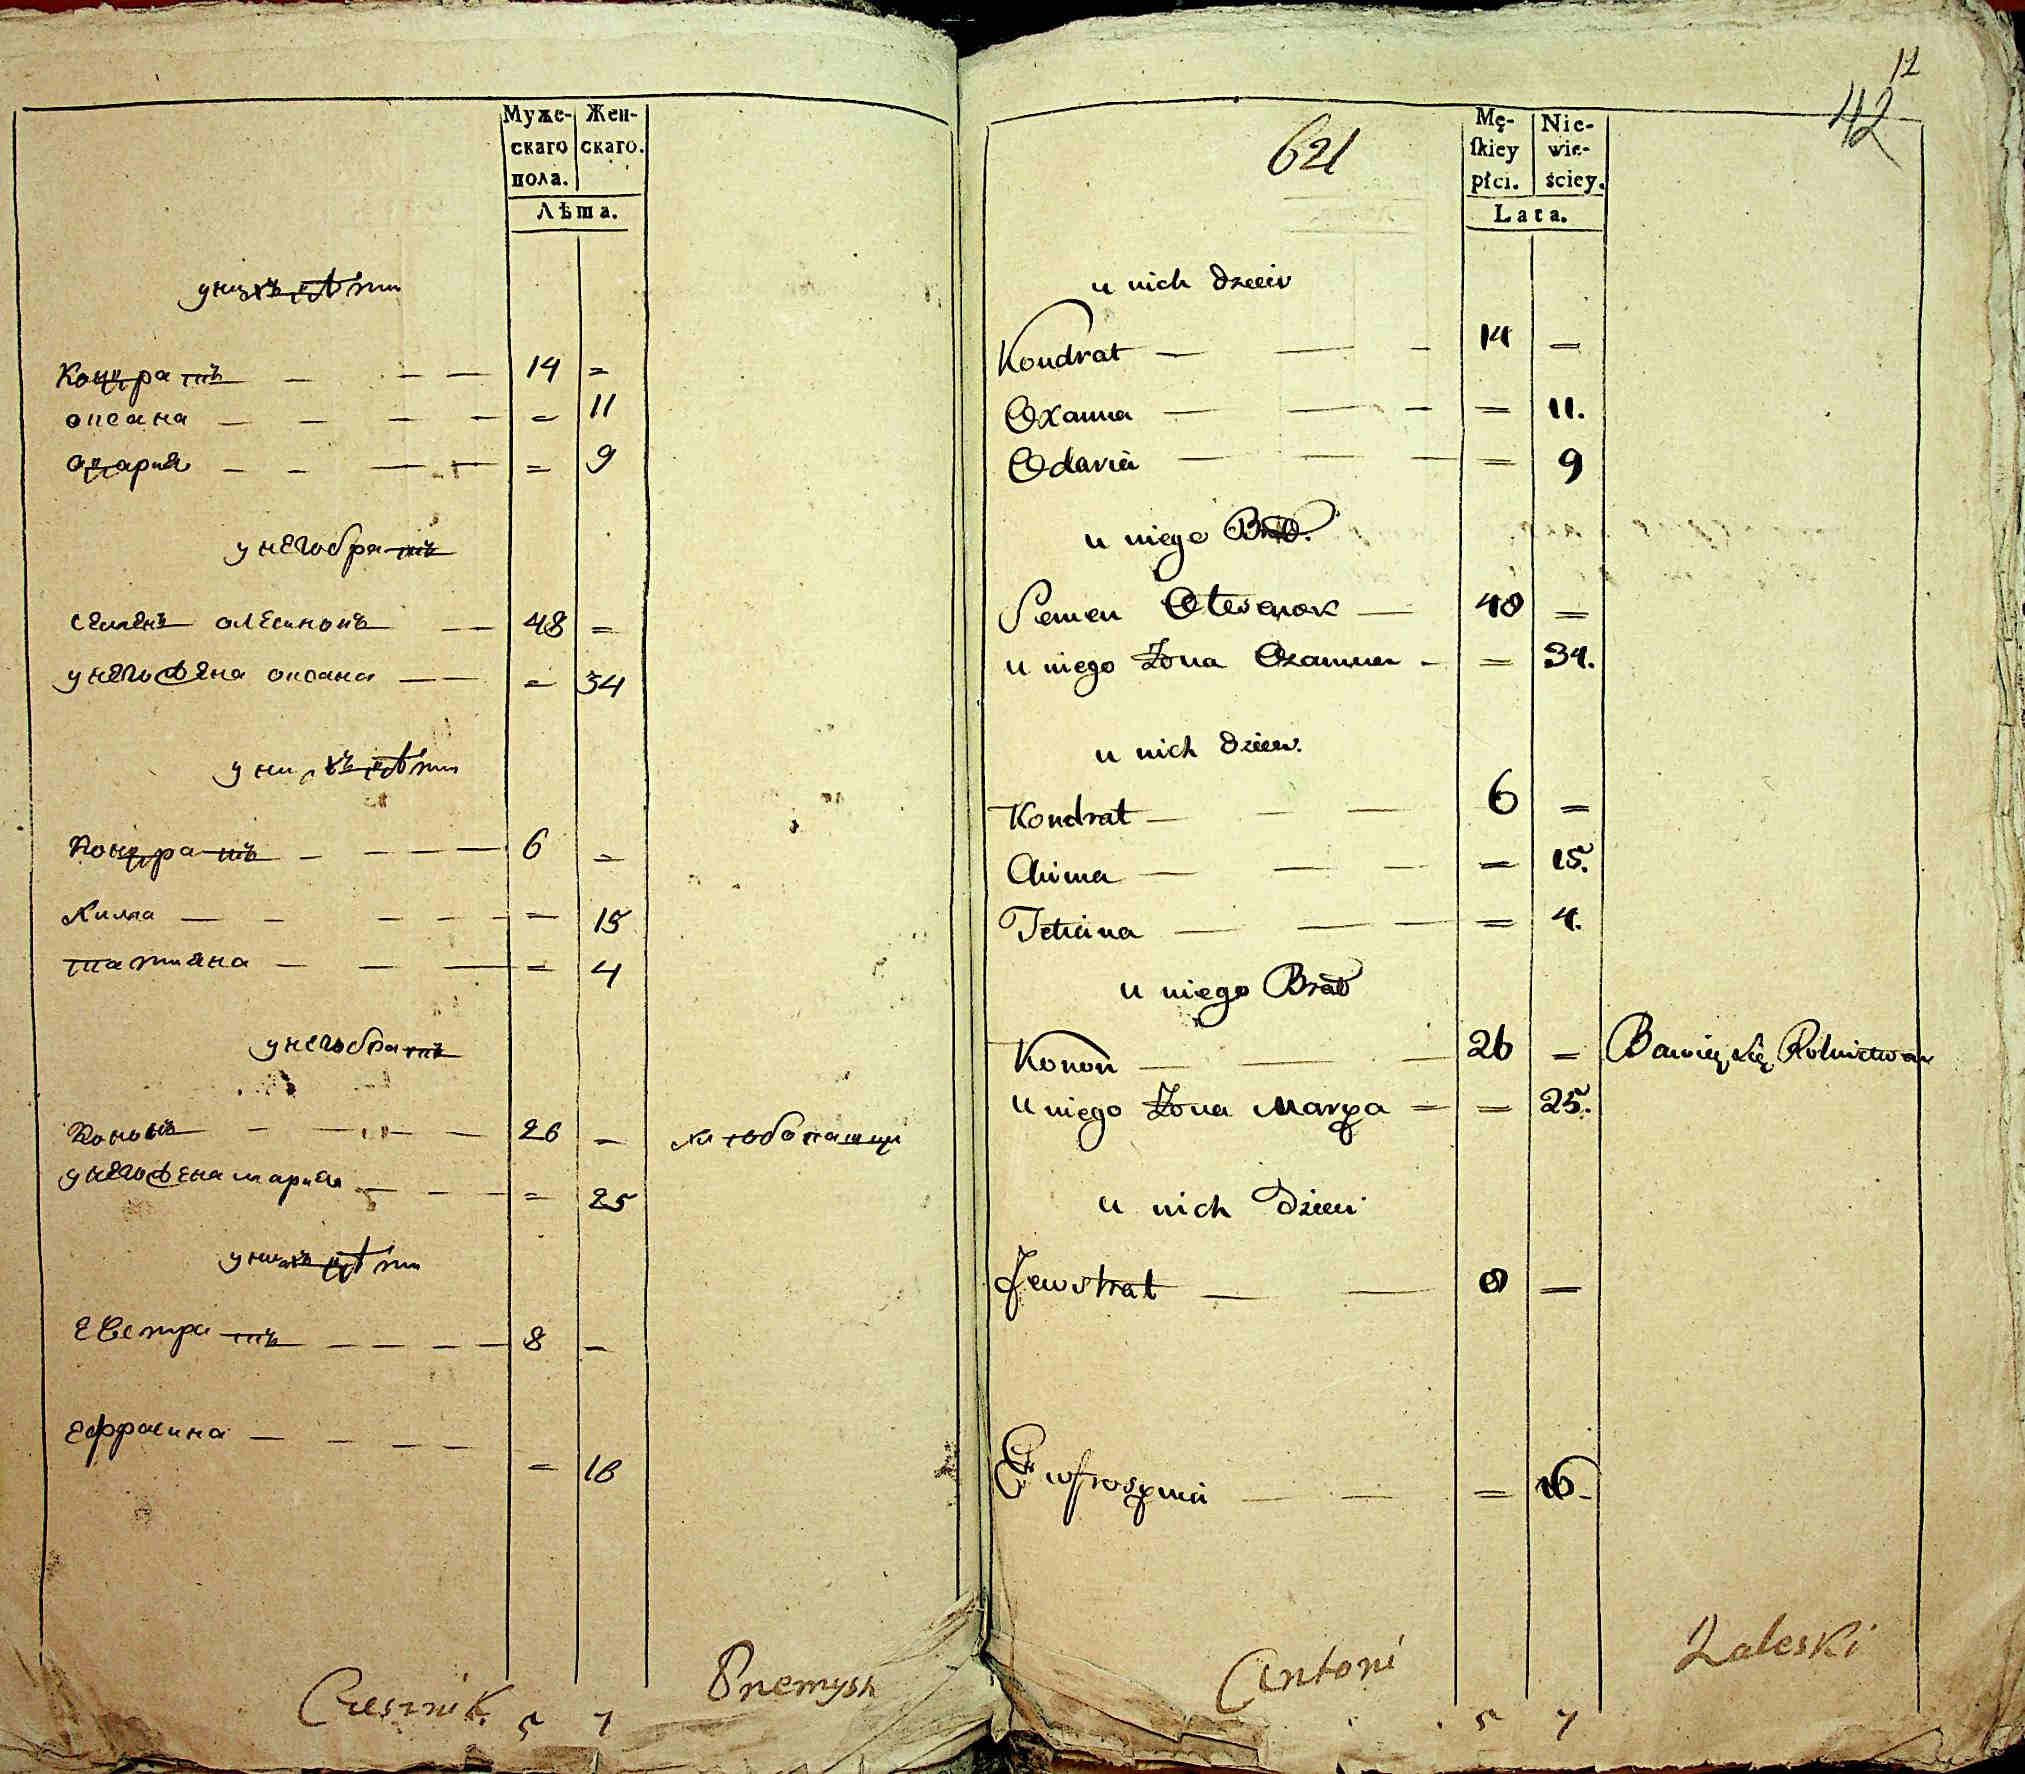 Муже- Жен-
скаго скаго.
пола.
Лѣта.
у нихъ дѣти
Кондратъ — — — 14 =
оксана — — — — = 11
одария — — — — = 9
у него братъ
семенъ олесиюкъ — — 48 =
у него жена оксана — — = 34
у нихъ дѣти
Кондратъ — — — — 6 =
химка — — — — — = 15
татияна — — — = 4
у него братъ
Кононъ — — — — 26 = хлебопашцы
у него жена мария — — — = 25
у нихъ дѣти
Евстратъ — — — — — 8 —
ефросина — — — —
= 16
Czesznik Przemysk
5 7
12
42
621
Mę- Nie-
ſkiey wie-
płci. ściey.
Lata.
u nich dzieci
Kondrat — — - 14 =
Oxanna — — - = 11.
Odaria — — — = 9
u niego Brat.
Semen — 48 =
u niego Żona Oxanna - = 34.
u nich dzieci
Kondrat — — — 6 =
Chima — — — = 15.
Teticina — — — = 4.
u niego Brat
Konon — — — 26 = Bawią się Rolnictwem
u niego Żona Marya = = 25.
u nich Dzieci
Jewstrat — — 8 —
Ewfrosyniia — — = 16-
Antoni Zaleski
5 7